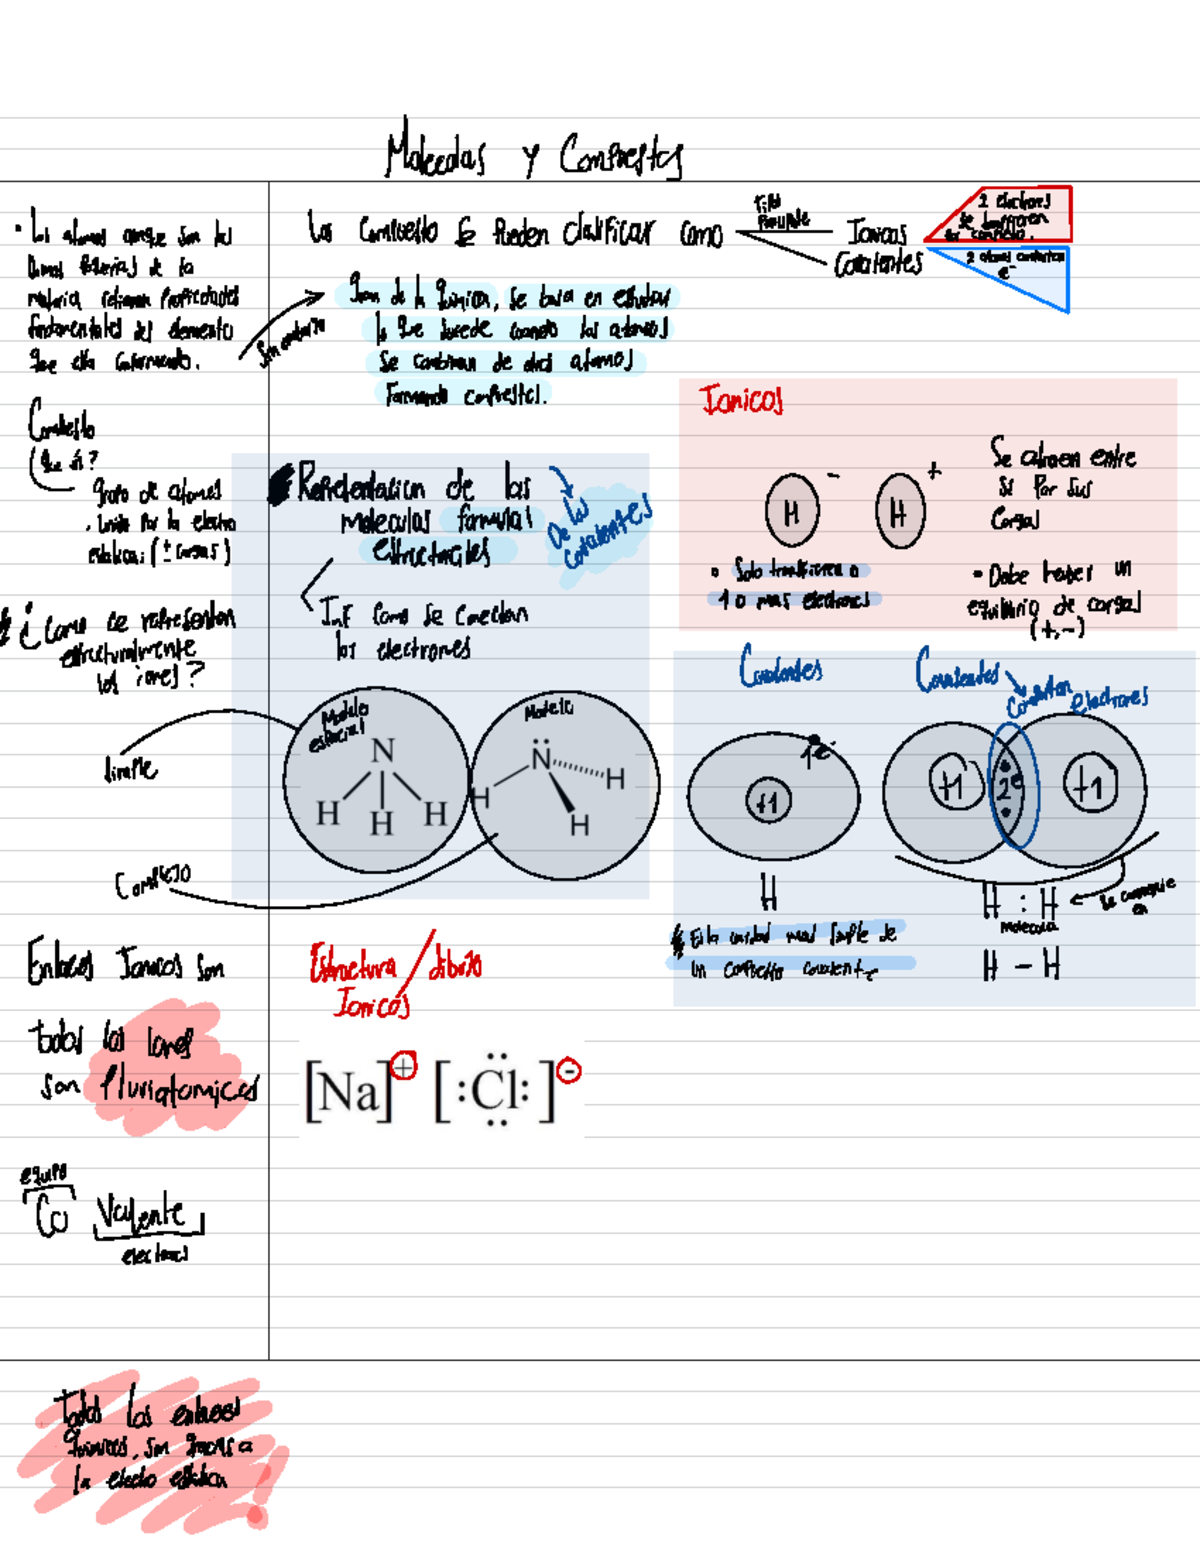 Moleculas y Compuestos
• Los atomos aunque son las
de la
materia retienen Propiedades
fundamentales del elemento
que esta conformando.
Sin embargo
Los Compuesto se Pueden clasificar como
Enlace Posible
Ionicos
Covalentes
2 electrones
se transfieren
2 atomos comparten
e⁻
Gran de la Quimica, se basa en estudiar
lo que sucede cuando los atomos
se combinan de otros atomos
Formando compuestos.
Compuesto
Que es?
grupo de atomos
. unido por la electro
estatica: (± cargas)
¿Como se representan
estructuralmente
los iones?
simple
Complejo
Representacion de las
moleculas formulas
estructurales
De los
Covalentes
Inf como se conectan
los electrones
Modelo
espacial
N
H H H
Modelo
N
H
H
H
Ionicos
H - H +
Se atraen entre
si Por sus
Cargas
• Solo transfieren
1 o mas electrones
- Debe haber un
equilibrio de cargas
(+,-)
Covalentes
1e⁻
+1
H
Es la unidad mas simple de
un compuesto covalente
Covalentes
Comparten
electrones
+1
2e
+1
H : H
molecula
se convierte
en
H - H
Enlaces Ionicos son
todos los Iones
son Pluriatomicos
Estructura / dibujo
Ionicos
[Na]+ [:Cl:]-
equipo
Co Valente
electrones
Todos los enlaces
quimicos, son gracias a
la electro estatica !